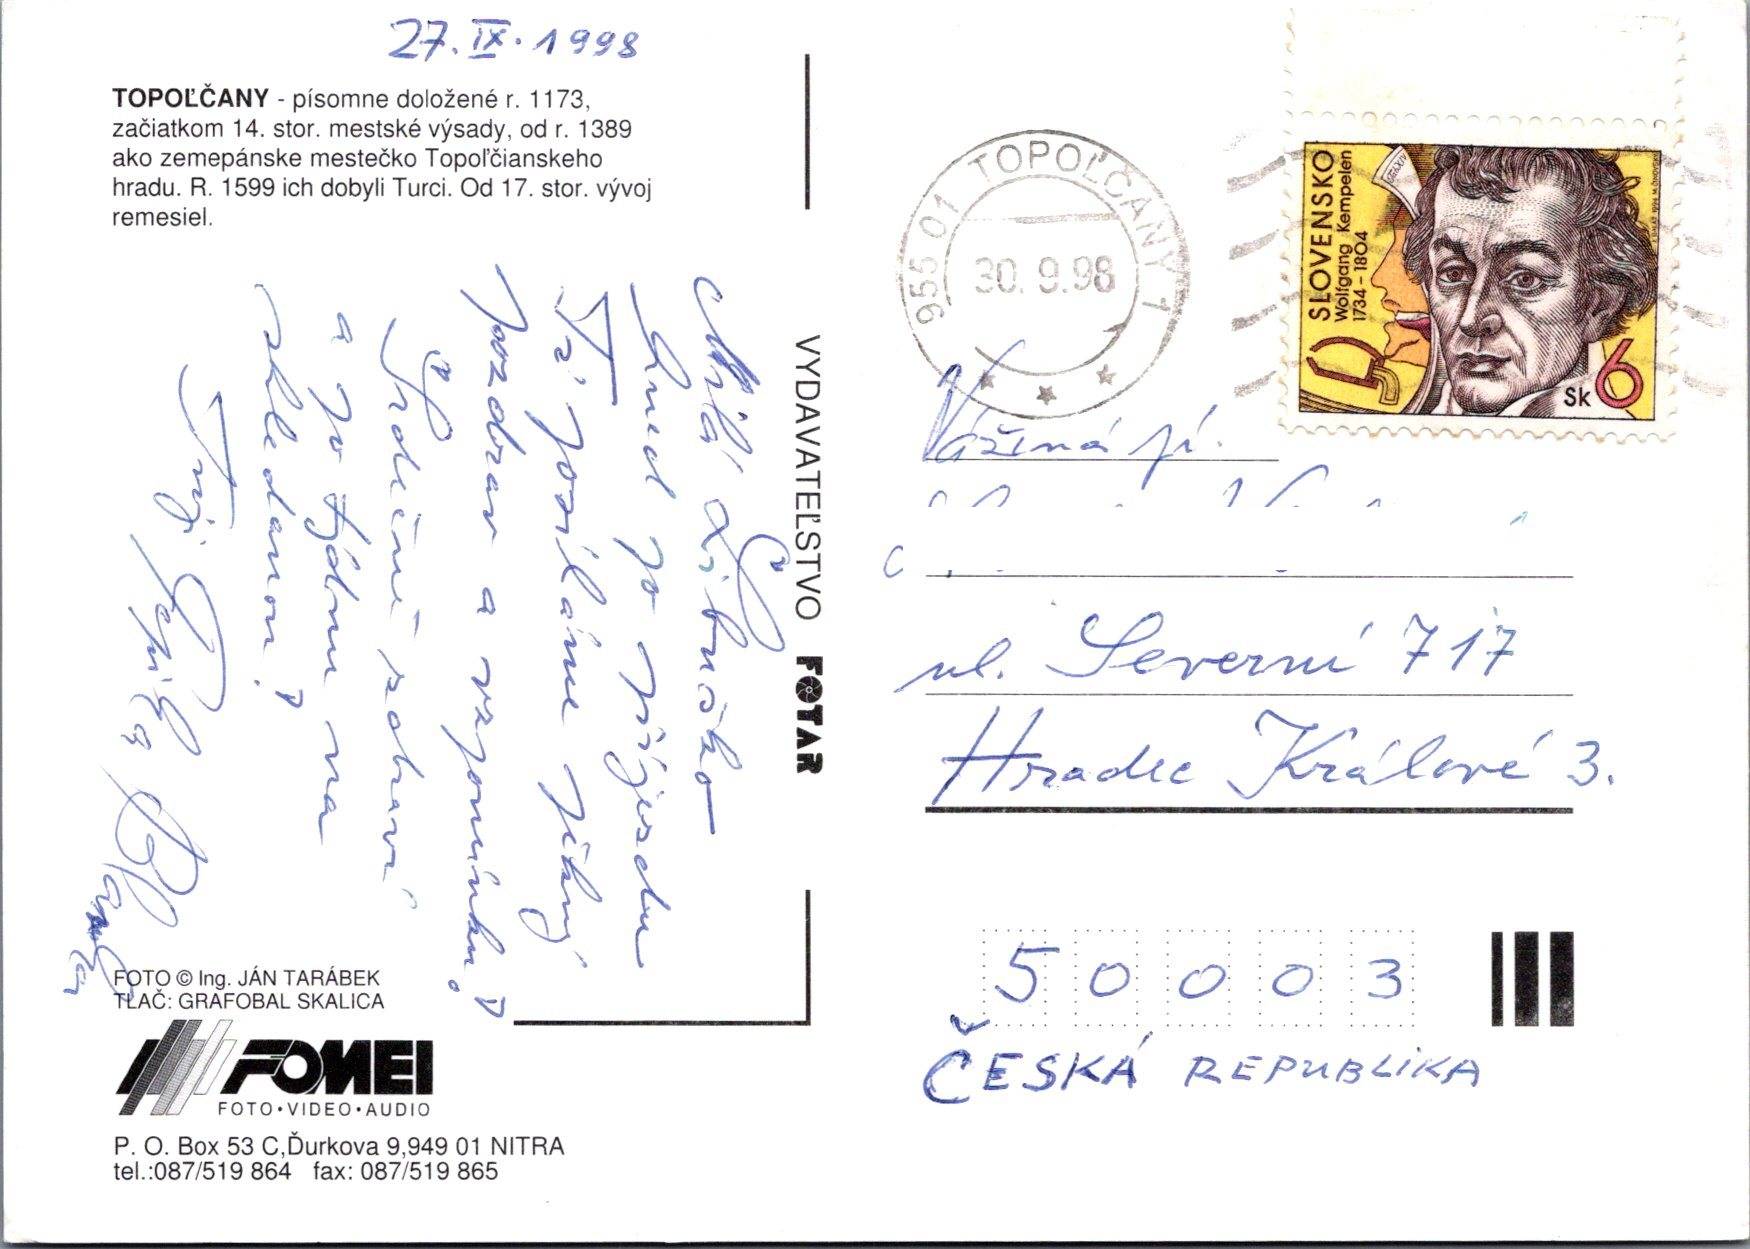 27. IX. 1998
TOPOĽČANY - písomne doložené r. 1173,
začiatkom 14. stor. mestské výsady, od r. 1389
ako zemepánske mestečko Topoľčianskeho
hradu. R. 1599 ich dobyli Turci. Od 17. stor. vývoj
remesiel.
Milá Libuško
hned po příjezdu
Ti posíláme pěkný
pozdrav a vzpomínku!
Srdečně zdraví
a po týdnu na
shledanou!
Tvoji
FOTO © Ing. JÁN TARÁBEK
TLAČ: GRAFOBAL SKALICA
FOMEI
FOTO•VIDEO•AUDIO
P. O. Box 53 C,Ďurkova 9,949 01 NITRA
tel.:087/519 864 fax: 087/519 865
VYDAVATEĽSTVO FOTAR
955 01 TOPOĽČANY 1
30. 9. 98
SLOVENSKO
Wolfgang Kempelen
1734 - 1804
Sk 6
Vážená pí.
ul. Severní 717
Hradec Králové 3.
50003
ČESKÁ REPUBLIKA